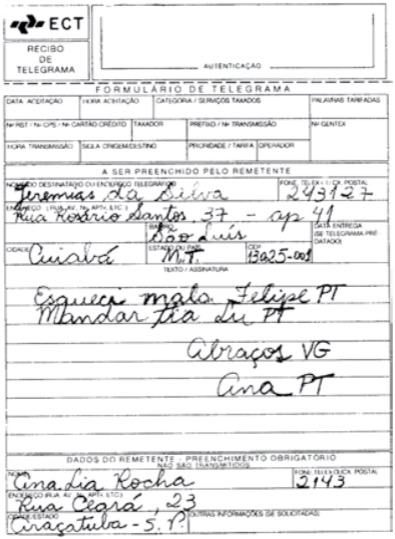 ECT
RECIBO
DE
TELEGRAMA
AUTENTICAÇÃO
FORMULÁRIO DE TELEGRAMA
DATA ACEITAÇÃO HORA ACEITAÇÃO CATEGORIA / SERVIÇOS TAXADOS PALAVRAS TARIFADAS
Nº CARTÃO CRÉDITO TAXADOR PREFIXO / Nº TRANSMISSÃO Nº GENTEX
HORA TRANSMISSÃO SIGLA ORIGEM/DESTINO PRIORIDADE / TARIFA OPERADOR
A SER PREENCHIDO PELO REMETENTE
NOME DO DESTINATÁRIO OU ENDEREÇO TELEGRÁFICO FONE, TELEX / CX. POSTAL
Jeremias da Silva 243127
ENDEREÇO (RUA, AV., Nº, APTº, ETC.)
Rua Rosário Santos, 37 - ap 41
BAIRRO DATA ENTREGA
São Luís (SE TELEGRAMA PRÉ-
DATADO)
CIDADE ESTADO OU PAÍS CEP
Cuiabá M.T. 13025-001
TEXTO / ASSINATURA
Esqueci mala Felipe PT
Mandar tia Lu PT
Abraços VG
Ana PT
DADOS DO REMETENTE - PREENCHIMENTO OBRIGATÓRIO
NÃO SÃO TRANSMITIDOS
NOME FONE, TELEX OU CX. POSTAL
Ana Lia Rocha 2143
ENDEREÇO (RUA, AV., Nº, APTº, ETC)
Rua Ceará, 23
CIDADE/ESTADO OUTRAS INFORMAÇÕES (SE SOLICITADAS)
Araçatuba - S.P.